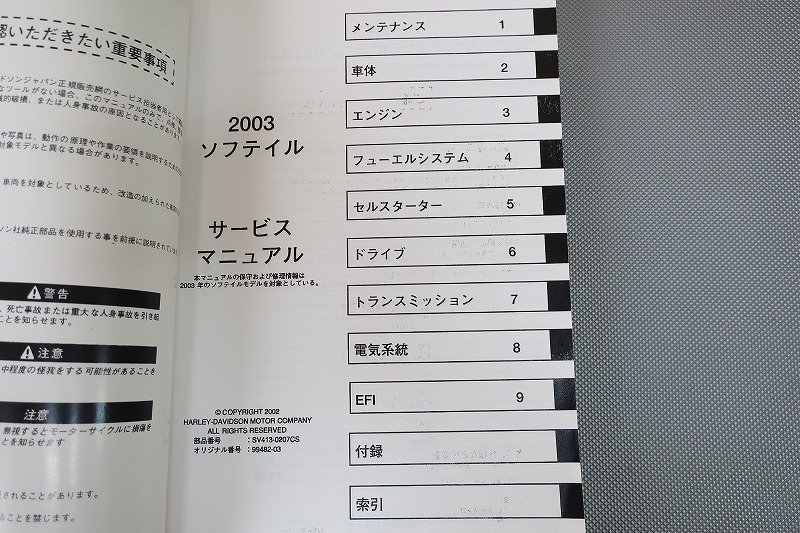 認いただきたい重要事項
ドソンジャパン正規販売網のサービス担当者用として
なツールがない場合、このマニュアルのみで、点検、
損的破損、または人身事故の原因となることがあります。
や写真は、動作の原理や作業の要領を説明するための
対象モデルと異なる場合があります。
車両を対象としているため、改造の加えられた
ソン社純正部品を使用する事を前提に説明されています
警告
、死亡事故または重大な人身事故を引き起
ことを知らせます。
注意
中程度の怪我をする可能性があることを
注意
無視するとモーターサイクルに損傷を
ことを知らせます
されることがあります。
ることを禁じます。
2003
ソフテイル
サービス
マニュアル
本マニュアルの保守および修理情報は
2003 年のソフテイルモデルを対象としている。
© COPYRIGHT 2002
HARLEY-DAVIDSON MOTOR COMPANY
ALL RIGHTS RESERVED
部品番号 : SV413-0207CS
オリジナル番号 : 99482-03
メンテナンス 1
車体 2
エンジン 3
フューエルシステム 4
セルスターター 5
ドライブ 6
トランスミッション 7
電気系統 8
EFI 9
付録
索引